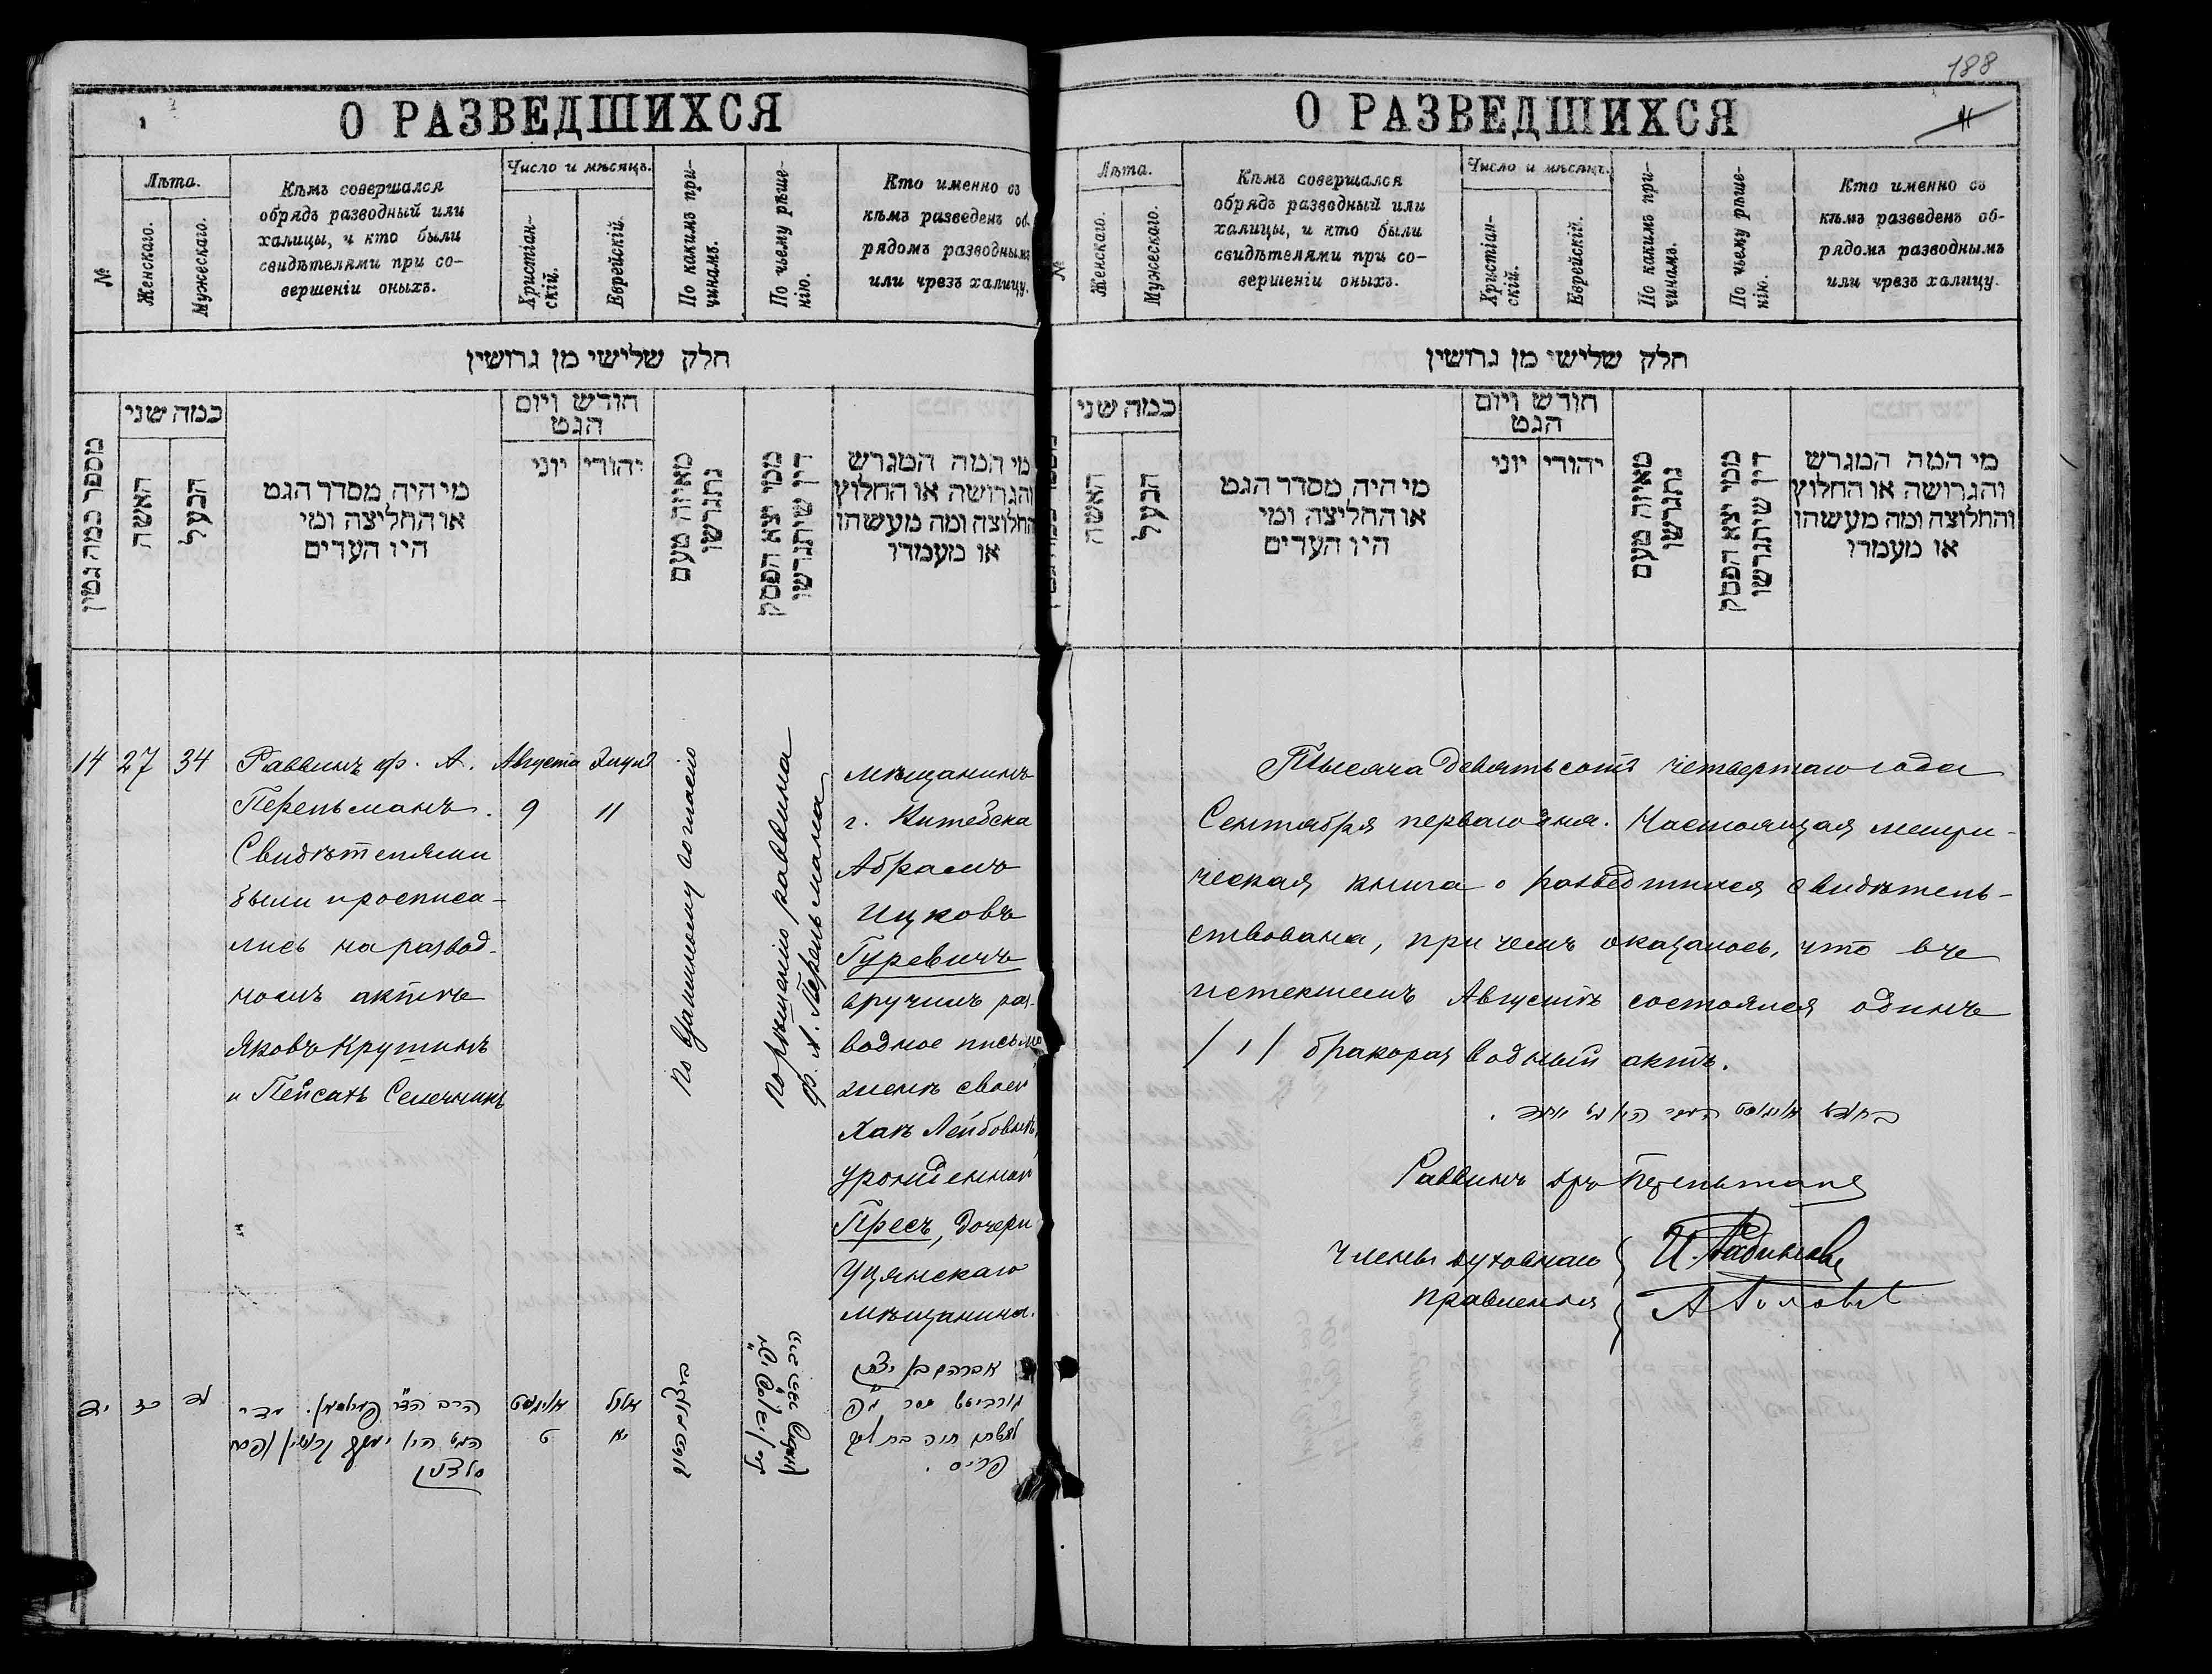 О РАЗВЕДШИХСЯ
№
Лѣта.
Женскаго.
Мужескаго.
Кѣмъ совершался
обрядъ разводный или
халицы, и кто были
свидѣтелями при со-
вершеніи оныхъ.
Число и мѣсяцъ.
Христіан-
скій.
Еврейскій.
По какимъ при-
чинамъ.
По чьему рѣше-
нію.
Кто именно съ
кѣмъ разведенъ об-
рядомъ разводнымъ
или чрезъ халицу.
חלק שלישי מן גרושין
מספר כמה גטין
כמה שני
האשה
הבעל
מי היה מסדר הגט
או החליצה ומי
היו העדים
חודש ויום
הגט
יוני
יהודי
מאיזה טעם
נתגרשו
ממי יצא הפסק
דין שיתגרשו
מי המה המגרש
והגרושה או החלוץ
והחלוצה ומה מעשהו
או מעמדו
14
27
34
Раввинъ др. А.
Перельманъ.
Свидѣтелями
были и росписа-
лись на развод-
номъ актѣ
Яковъ Крутинъ
и Пейсахъ
Августа
9
Элулъ
11
По взаимному согласію
По рѣшенію раввина
др. А. Перельмана
мѣщанинъ
г. Витебска
Абрамъ
Ицковъ
Гуревичъ
вручилъ раз-
водное письмо
женѣ своей
Хаѣ Лейбовнѣ,
урожденной
Пресъ, дочери
Уцянскаго
мѣщанина.
יד
כז
לד
הרב הד"ר פרעלמאן.
אויגוסט
ט
אלול
יא
אברהם בן יצחק
לאשתו חיה בת
פרעס.
188
О РАЗВЕДШИХСЯ
№
Лѣта.
Женскаго.
Мужескаго.
Кѣмъ совершался
обрядъ разводный или
халицы, и кто были
свидѣтелями при со-
вершеніи оныхъ.
Число и мѣсяцъ.
Христіан-
скій.
Еврейскій.
По какимъ при-
чинамъ.
По чьему рѣше-
нію.
Кто именно съ
кѣмъ разведенъ об-
рядомъ разводнымъ
или чрезъ халицу.
חלק שלישי מן גרושין
כמה שני
האשה
הבעל
מי היה מסדר הגט
או החליצה ומי
היו העדים
חודש ויום
הגט
יוני
יהודי
מאיזה טעם
נתגרשו
ממי יצא הפסק
דין שיתגרשו
מי המה המגרש
והגרושה או החלוץ
והחלוצה ומה מעשהו
או מעמדו
Тысяча девятьсотъ четвертаго года
Сентября перваго дня. Настоящая метри-
ческая книга о разведшихся свидѣтель-
ствована, при чемъ оказалось, что въ
истекшемъ Августѣ состоялся одинъ
/1/ бракоразводный актъ.
Раввинъ дръ Перельманъ
Члены духовнаго
правленія